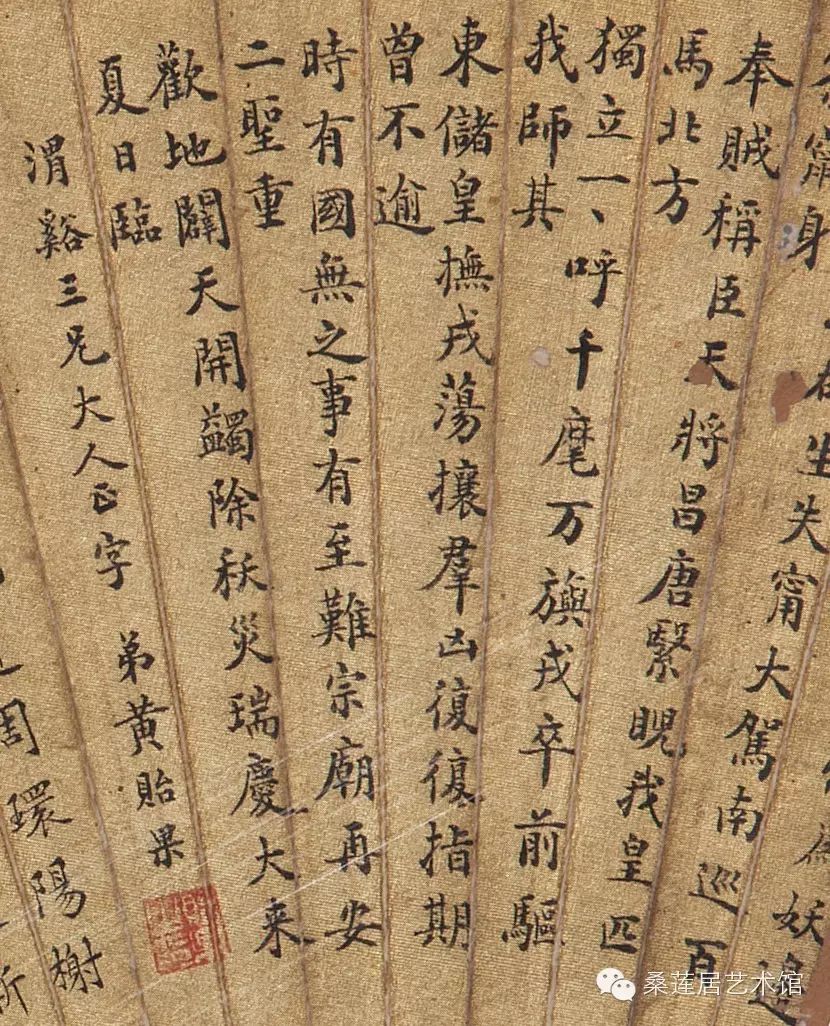 為妖邊
生失甯大駕南巡百
竄身
奉賊稱臣天將昌唐繄睨我皇匹
馬北方
獨立一呼千麾万旟戎卒前驅
我師其
東儲皇撫戎蕩攘羣凶復復指期
曾不逾
時有國無之事有至難宗廟再安
二聖重
歡地闢天開蠲除祅災瑞慶大来
夏日臨
渭谿三兄大人正字
弟黃貽果
環陽榭
周
斯
桑莲居艺术馆